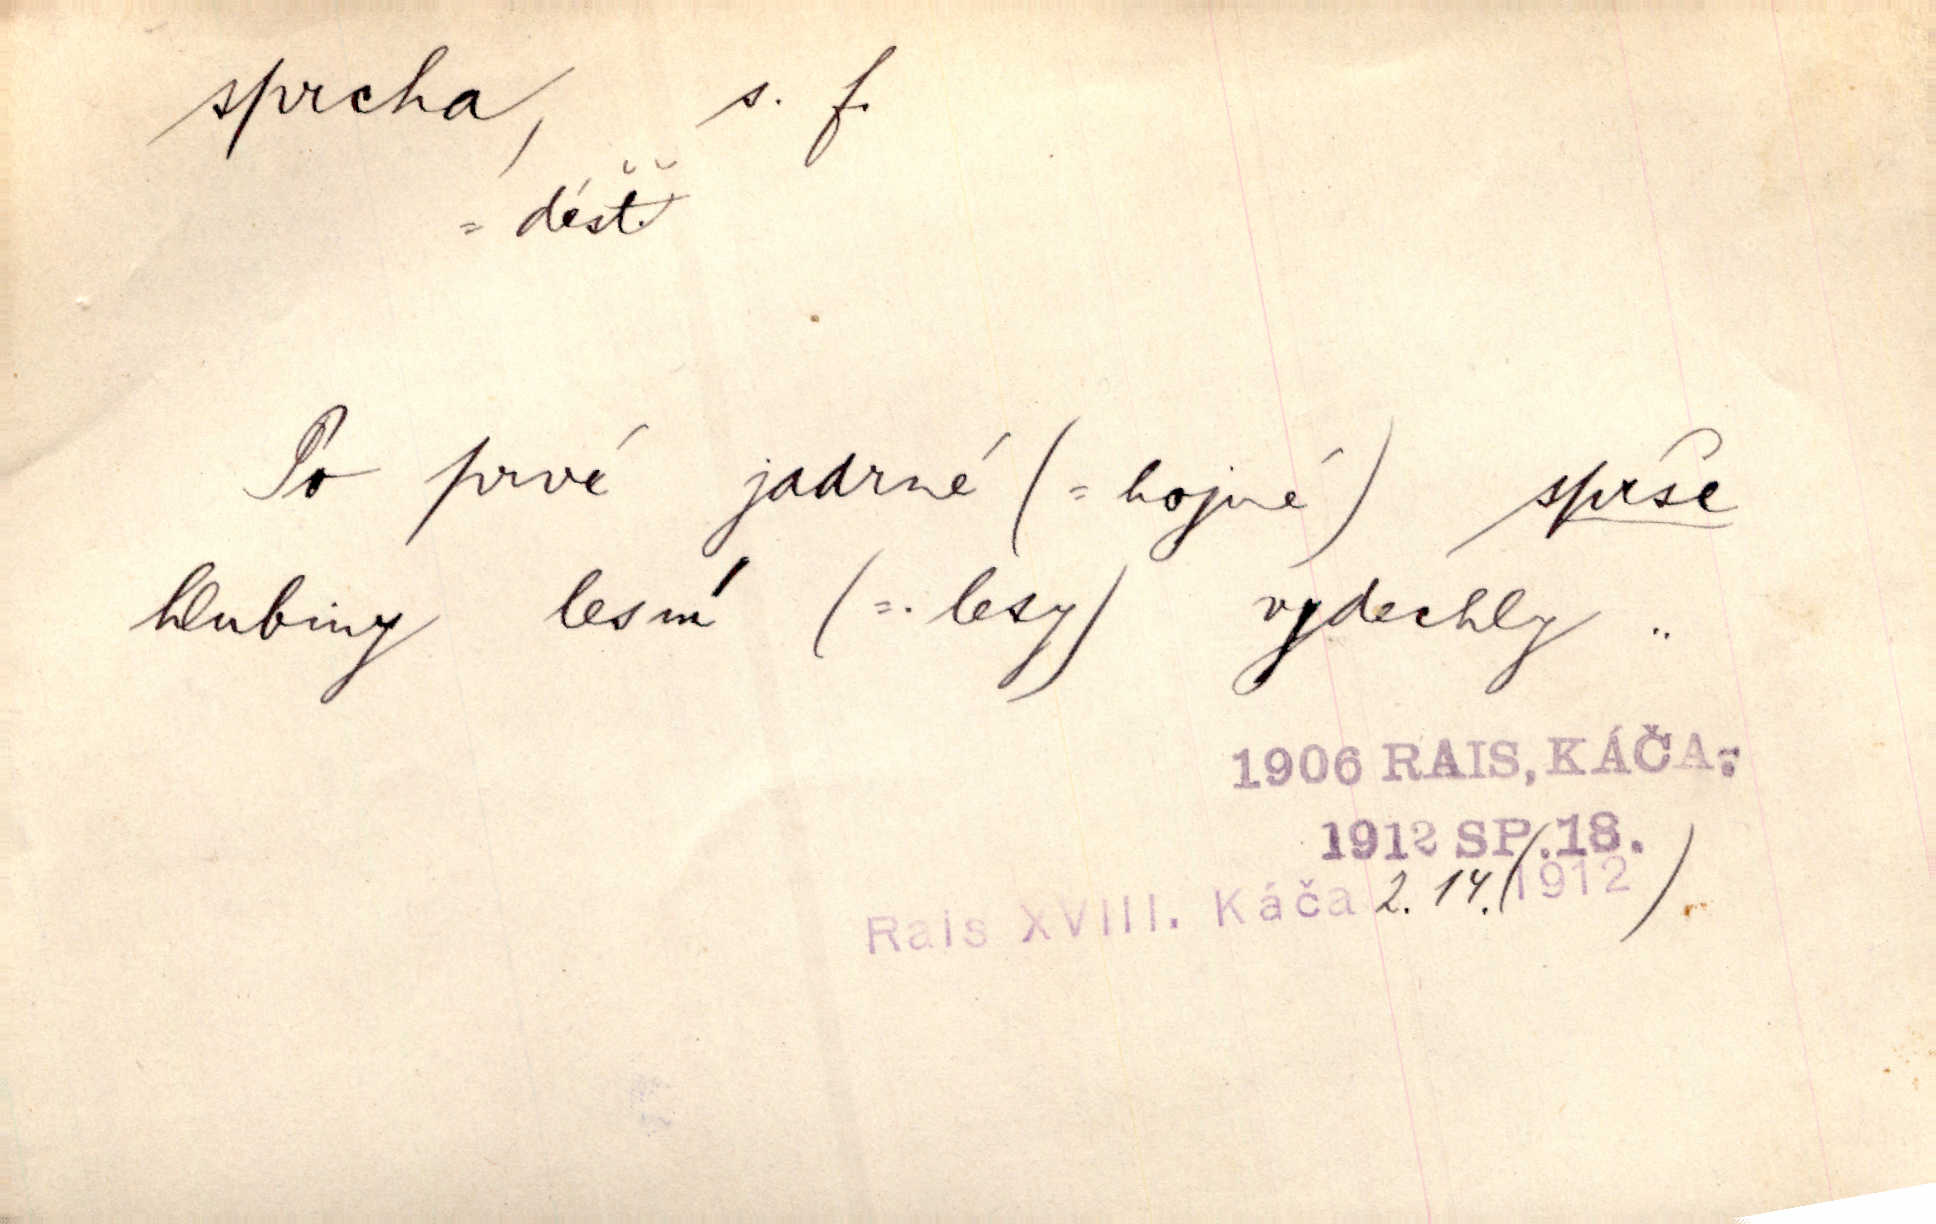 sprcha, s. f.
= déšť.
Po prvé jadrné (= hojné) sprše
hlubiny lesní (= lesy) vydechly ..
1906 RAIS, KÁČA:
1912 SP. 18.
Rais XVIII. Káča 2. 14. (1912)